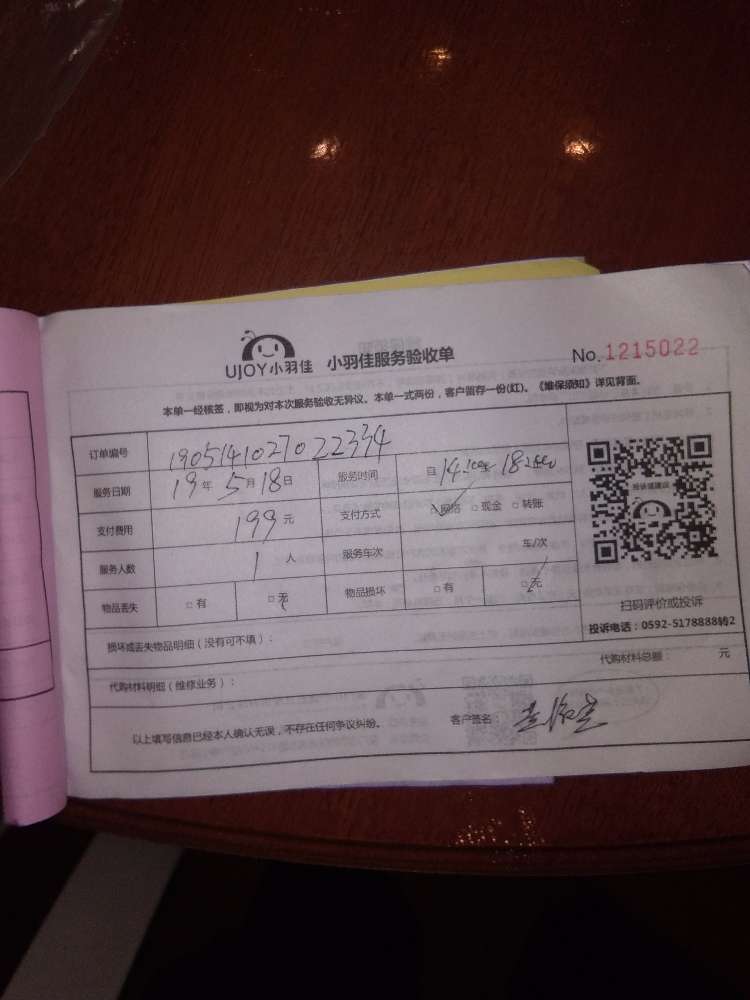 UJOY小羽佳 小羽佳服务验收单 No.1215022
本单一经核签，即视为对本次服务验收无异议。本单一式两份，客户留存一份(红)。《维保须知》详见背面。
订单编号 1905141027022334
服务日期 19年5月18日 服务时间 自14:00至18:00
支付费用 199元 支付方式 □网络 □现金 □转账
服务人数 1人 服务车次 车/次
物品丢失 □有 □无 物品损坏 □有 □无
投诉或建议
扫码评价或投诉
投诉电话：0592-5178888转2
损坏或丢失物品明细（没有可不填）：
代购材料明细（维修业务）： 代购材料总额： 元
以上填写信息已经本人确认无误，不存在任何争议纠纷。 客户签名：